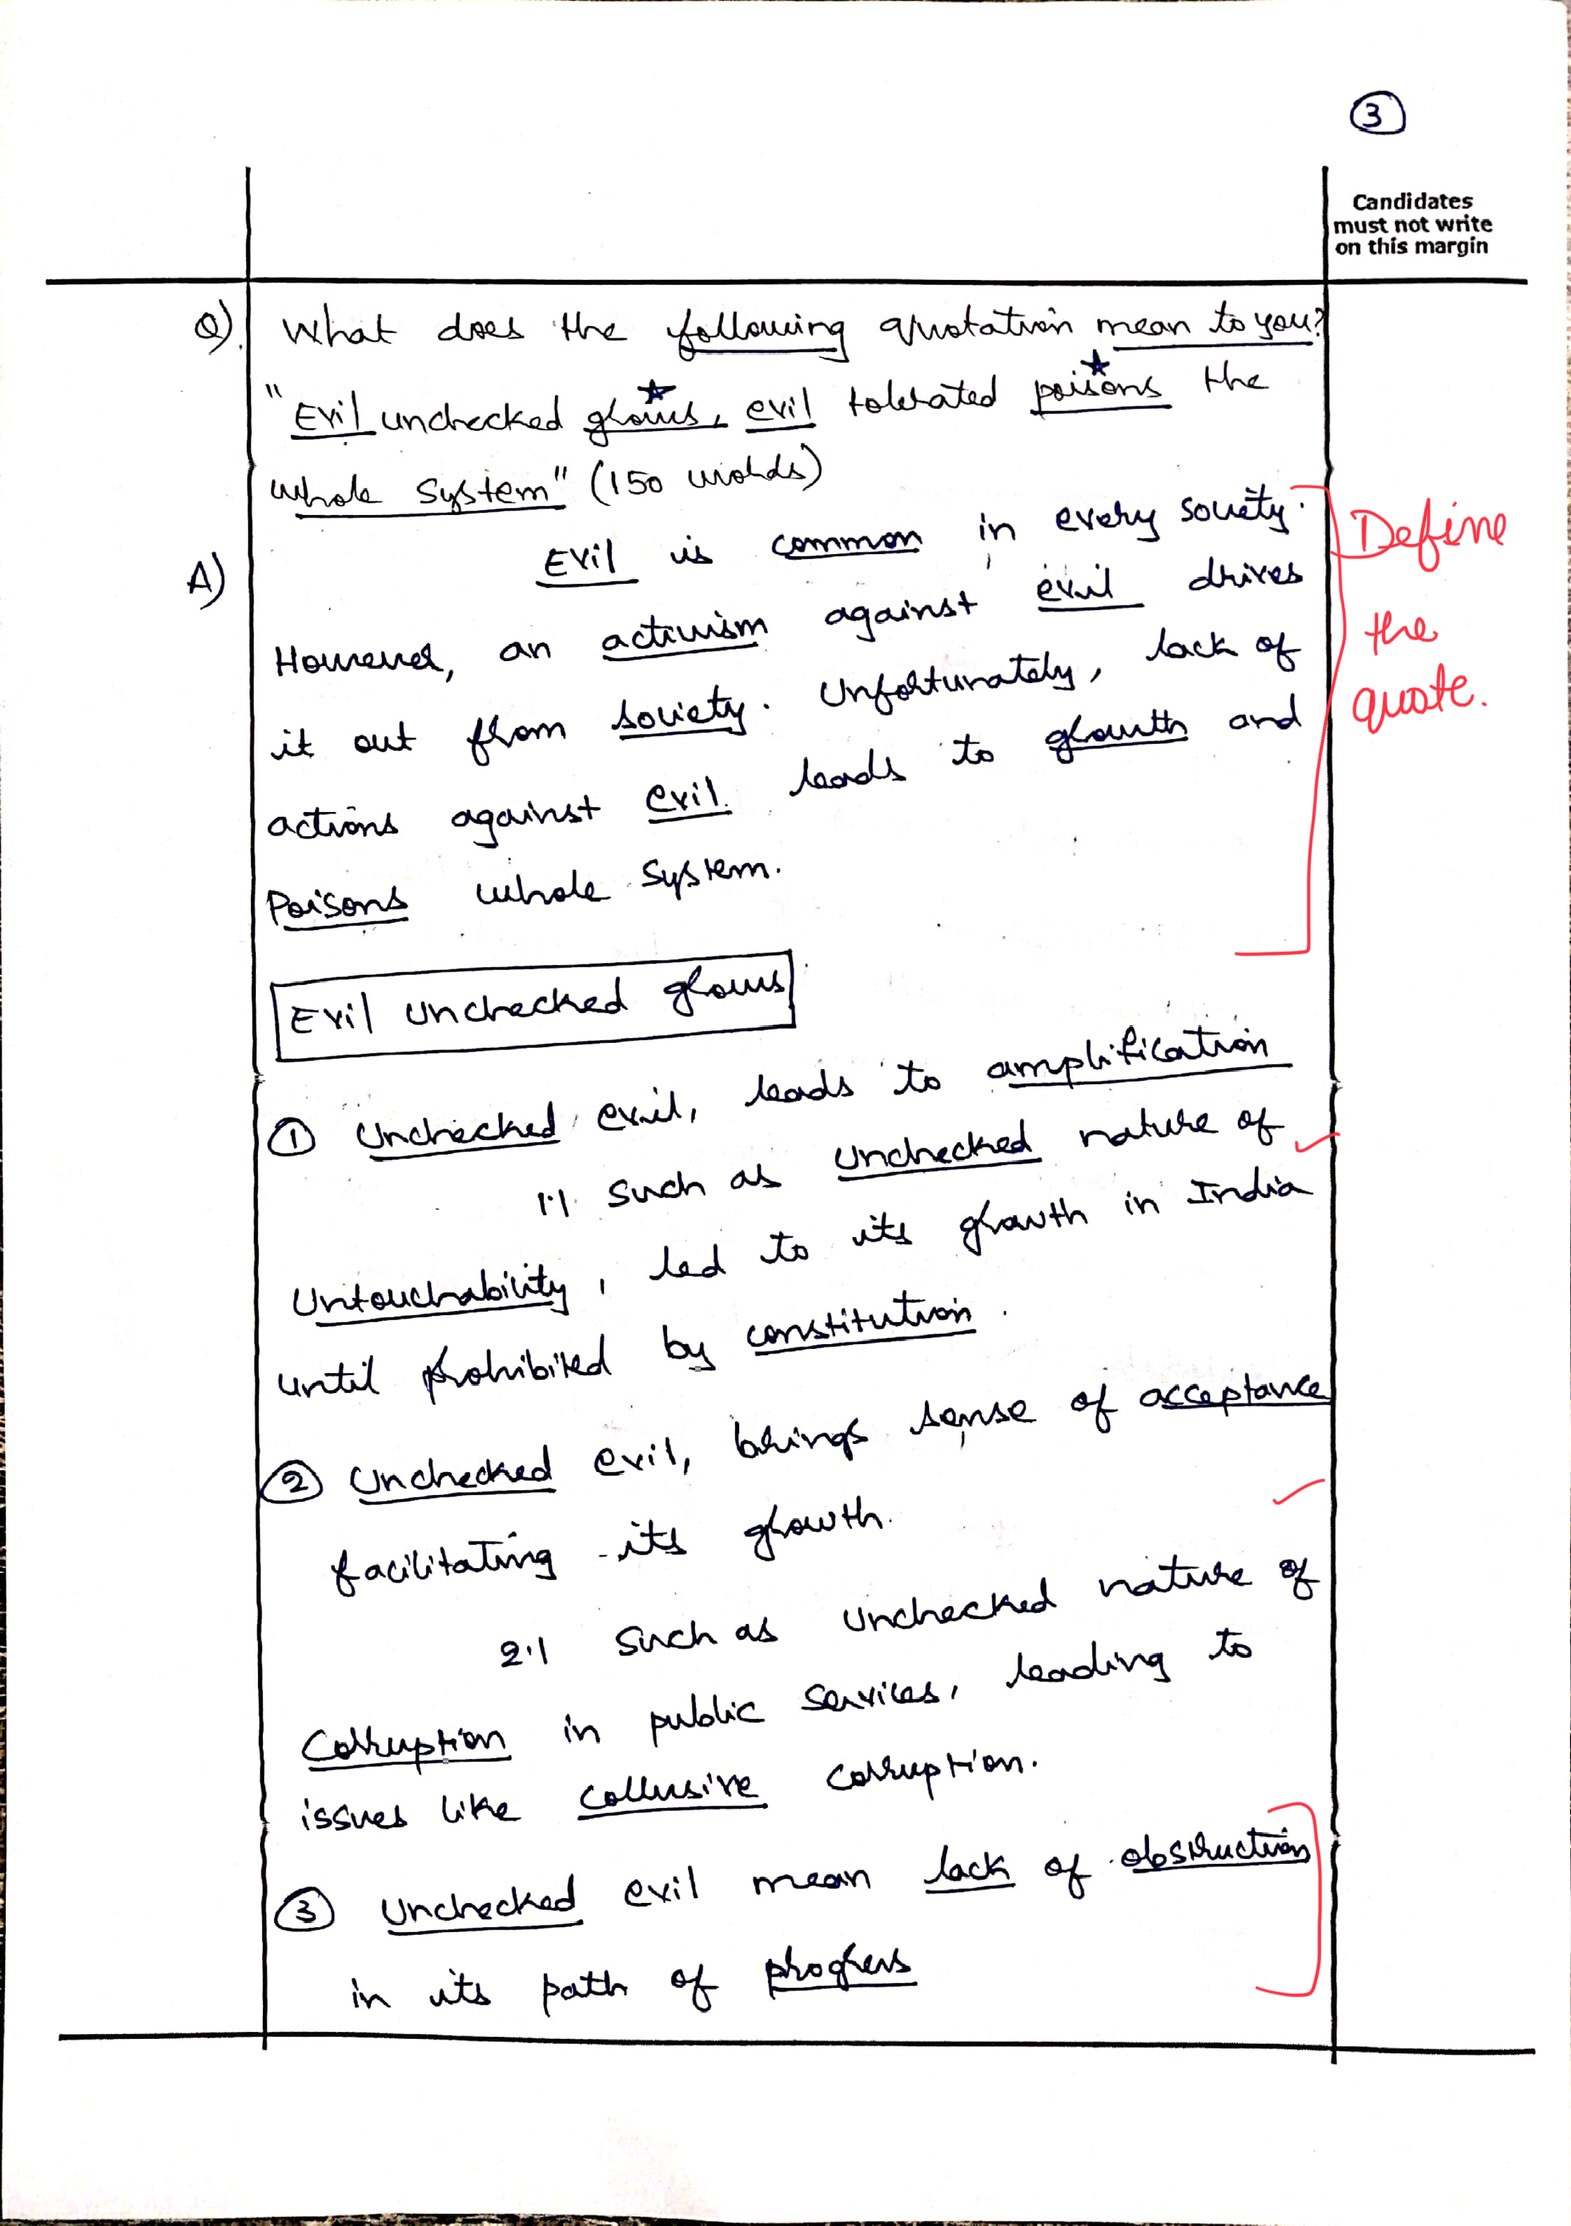 3
Candidates
must not write
on this margin
Q). What does the following quotation mean to you?
"Evil unchecked grows, evil tolerated poisons the
whole system" (150 words)
A) Evil is common in every society.
However, an activism against evil drives
it out from society. Unfortunately, lack of
actions against evil leads to growth and
Poisons whole system.
Define
the
quote.
Evil unchecked grows
1 Unchecked evil, leads to amplification
1.1 Such as unchecked nature of
Untouchability, led to its growth in India
until prohibited by constitution.
2 Unchecked evil, brings sense of acceptance
facilitating its growth.
2.1 Such as unchecked nature of
Corruption in public services, leading to
issues like collusive corruption.
3 Unchecked evil mean lack of obstruction
in its path of progress